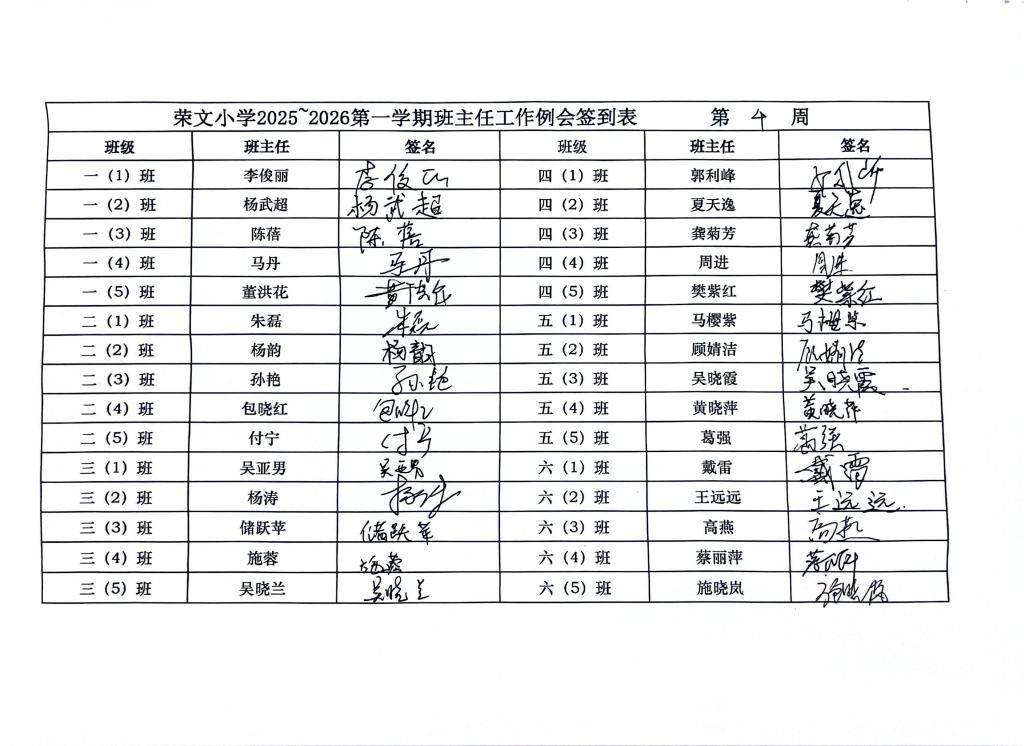 荣文小学2025~2026第一学期班主任工作例会签到表 第 4 周
班级 班主任 签名 班级 班主任 签名
一（1）班 李俊丽 李俊丽 四（1）班 郭利峰
一（2）班 杨武超 杨武超 四（2）班 夏天逸 夏天逸
一（3）班 陈蓓 陈蓓 四（3）班 龚菊芳 龚菊芳
一（4）班 马丹 马丹 四（4）班 周进 周进
一（5）班 董洪花 董洪花 四（5）班 樊紫红 樊紫红
二（1）班 朱磊 朱磊 五（1）班 马樱紫 马樱紫
二（2）班 杨韵 杨韵 五（2）班 顾婧洁 顾婧洁
二（3）班 孙艳 孙艳 五（3）班 吴晓霞 吴晓霞
二（4）班 包晓红 包晓红 五（4）班 黄晓萍 黄晓萍
二（5）班 付宁 付宁 五（5）班 葛强 葛强
三（1）班 吴亚男 吴亚男 六（1）班 戴雷 戴雷
三（2）班 杨涛 杨涛 六（2）班 王远远 王远远
三（3）班 储跃苹 储跃苹 六（3）班 高燕 高燕
三（4）班 施蓉 施蓉 六（4）班 蔡丽萍 蔡丽萍
三（5）班 吴晓兰 吴晓兰 六（5）班 施晓岚 施晓岚